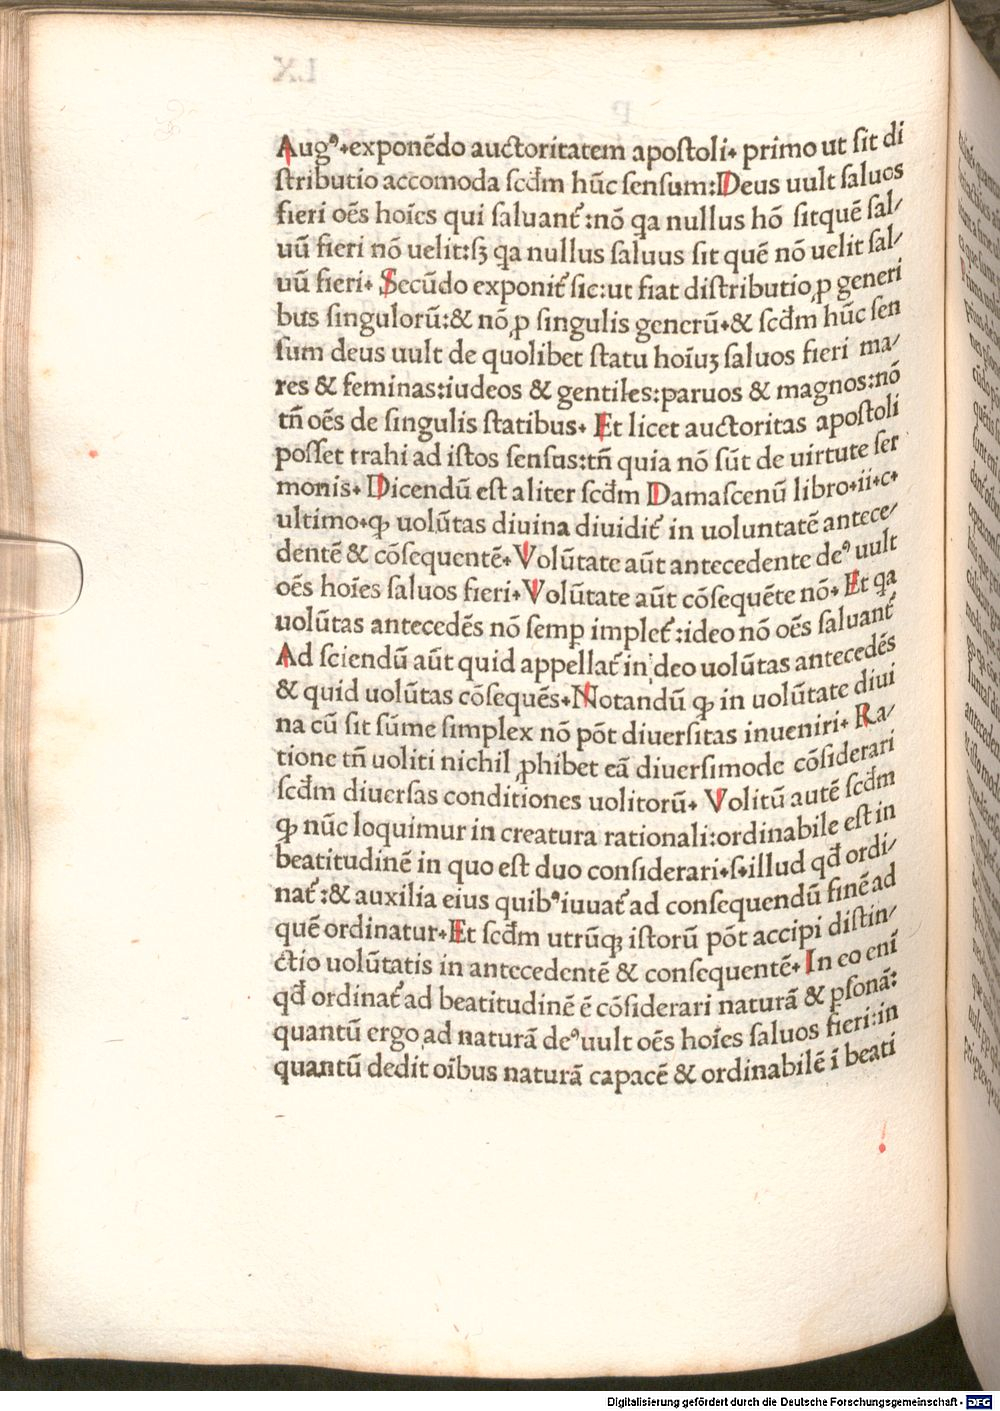 Augꝰ.exponēdo auctoritatem apoſtoli. primo ut ſit di
ſtributio accomoda ſcđm hūc ſenſum:Deus uult ſaluos
fieri oēs hoīes qui ſaluant᷑:nō qa nullus hō ſitquē ſal/
uū fieri nō uelit:ſꝫ qa nullus ſaluus ſit quē nō uelit ſal/
uū fieri. Secūdo exponit᷑ ſic:ut fiat diſtributio ꝓ generi
bus ſingulorū:& nō ꝓ ſingulis generū.& ſcđm hūc ſen
ſum deus uult de quolibet ſtatu hoīuꝫ ſaluos fieri ma/
res & feminas:iudeos & gentiles:paruos & magnos:nō
tn̄ oēs de ſingulis ſtatibus. Et licet auctoritas apoſtoli
poſſet trahi ad iſtos ſenſus:tn̄ quia nō ſūt de uirtute ſer
monis. Dicendū eſt aliter ſcđm Damaſcenū libro.ii.c.
ultimo.ꝙ uolūtas diuina diuidit᷑ in uoluntatē antece/
dentē & cōſequentē. Volūtate aūt antecedente deꝰ uult
oēs hoīes ſaluos fieri. Volūtate aūt cōſequēte nō. Et qa
uolūtas antecedēs nō ſemꝑ implet᷑:ideo nō oēs ſaluant᷑
Ad ſciendū aūt quid appellat᷑ in deo uolūtas antecedēs
& quid uolūtas cōſequēs. Notandū ꝙ in uolūtate diui
na cū ſit ſūme ſimplex nō pōt diuerſitas inueniri. Ra/
tione tn̄ uoliti nichil ꝓhibet eā diuerſimode cōſiderari
ſcđm diuerſas conditiones uolitorū. Volitū autē ſcđm
ꝙ nūc loquimur in creatura rationali:ordinabile eſt in
beatitudinē in quo eſt duo conſiderari.ſ.illud qđ ordi/
nat᷑:& auxilia eius quibꝰ iuuat᷑ ad conſequendū finē ad
quē ordinatur. Et ſcđm utrūqꝫ iſtorū pōt accipi diſtin/
ctio uolūtatis in antecedentē & conſequentē. In eo enī
qđ ordinat᷑ ad beatitudinē ē cōſiderari naturā & ꝑſonā:
quantū ergo ad naturā deꝰ uult oēs hoīes ſaluos fieri:in
quantū dedit oībus naturā capacē & ordinabilē ī beati
Digitalisierung gefördert durch die Deutsche Forschungsgemeinschaft - DFG